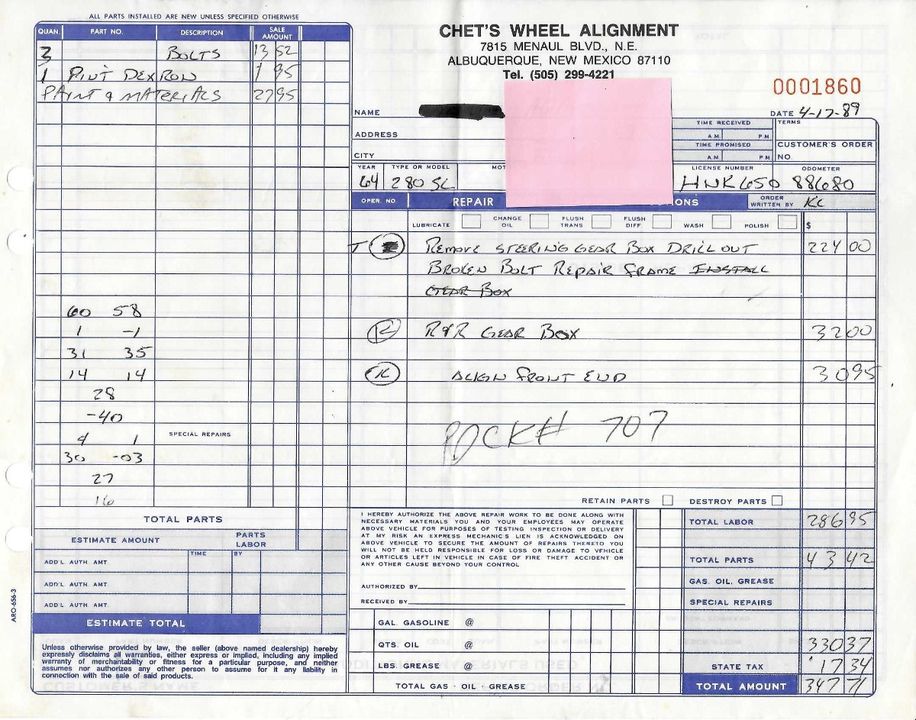 ALL PARTS INSTALLED ARE NEW UNLESS SPECIFIED OTHERWISE
QUAN. PART NO. DESCRIPTION SALE AMOUNT
3 BOLTS 13 52
1 PINT DEXRON 1 95
PAINT & MATERIALS 27 95
CHET'S WHEEL ALIGNMENT
7815 MENAUL BLVD., N.E.
ALBUQUERQUE, NEW MEXICO 87110
Tel. (505) 299-4221
0001860
NAME DATE 4-17-89
ADDRESS TIME RECEIVED TERMS
A.M. P.M.
CITY TIME PROMISED CUSTOMER'S ORDER
A.M. P.M. NO.
YEAR TYPE OR MODEL MOT LICENSE NUMBER ODOMETER
64 280 SL HNK650 88680
OPER. NO. REPAIR ONS ORDER WRITTEN BY KC
LUBRICATE CHANGE OIL FLUSH TRANS FLUSH DIFF WASH POLISH $
T REMOVE STEERING GEAR BOX DRILL OUT 224 00
BROKEN BOLT REPAIR FRAME INSTALL
GEAR BOX
R&R GEAR BOX 32 00
ALIGN FRONT END 30 95
ROCK# 707
60 58
1 -1
31 35
14 14
28
-40
4 1
30 -03
27
16
SPECIAL REPAIRS
RETAIN PARTS DESTROY PARTS
TOTAL PARTS
ESTIMATE AMOUNT PARTS LABOR
TIME BY
ADD'L AUTH AMT.
ADD'L AUTH AMT.
ADD'L AUTH AMT.
ESTIMATE TOTAL
ARO-656-3
Unless otherwise provided by law, the seller (above named dealership) hereby
expressly disclaims all warranties, either express or implied, including any implied
warranty of merchantability or fitness for a particular purpose, and neither
assumes nor authorizes any other person to assume for it any liability in
connection with the sale of said products.
I HEREBY AUTHORIZE THE ABOVE REPAIR WORK TO BE DONE ALONG WITH
NECESSARY MATERIALS YOU AND YOUR EMPLOYEES MAY OPERATE
ABOVE VEHICLE FOR PURPOSES OF TESTING INSPECTION OR DELIVERY
AT MY RISK AN EXPRESS MECHANICS LIEN IS ACKNOWLEDGED ON
ABOVE VEHICLE TO SECURE THE AMOUNT OF REPAIRS THERETO YOU
WILL NOT BE HELD RESPONSIBLE FOR LOSS OR DAMAGE TO VEHICLE
OR ARTICLES LEFT IN VEHICLE IN CASE OF FIRE THEFT ACCIDENT OR
ANY OTHER CAUSE BEYOND YOUR CONTROL
AUTHORIZED BY
RECEIVED BY
GAL. GASOLINE @
QTS. OIL @
LBS. GREASE @
TOTAL GAS - OIL - GREASE
TOTAL LABOR 286 95
TOTAL PARTS 43 42
GAS. OIL. GREASE
SPECIAL REPAIRS
330 37
STATE TAX 17 34
TOTAL AMOUNT 347 71